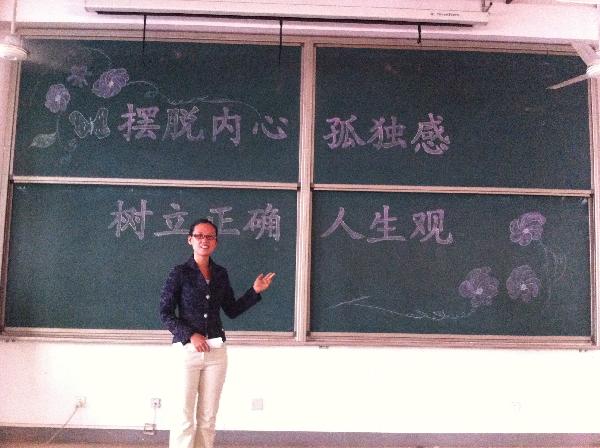 摆脱内心孤独感
树立正确人生观